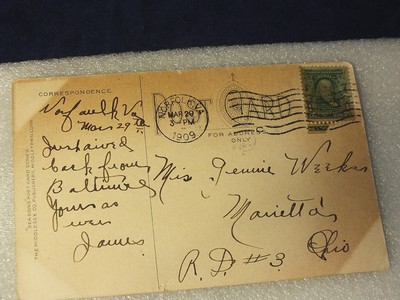 CORRESPONDENCE
POST CARD
NORFOLK, VA.
MAR 29
3-PM
1909
FOR ADDRESS
ONLY
Norfaulk Va
Mar 29
Just arived
back from
Baltimore
Yours as
ever
James
Miss Jennie Weeks
Marietta
R.D #3 Ohio